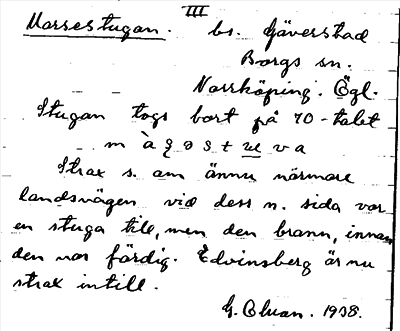 III
Morsestugan. bs. Gäverstad
Borgs sn.
Norrköping. Ögl.
Stugan togs bort på 70-talet
Strax s. om ännu närmare
landsvägen vid dess n. sida var
en stuga till, men den brann, innan
den var färdig. Edvinsberg är nu
strax intill.
1938.